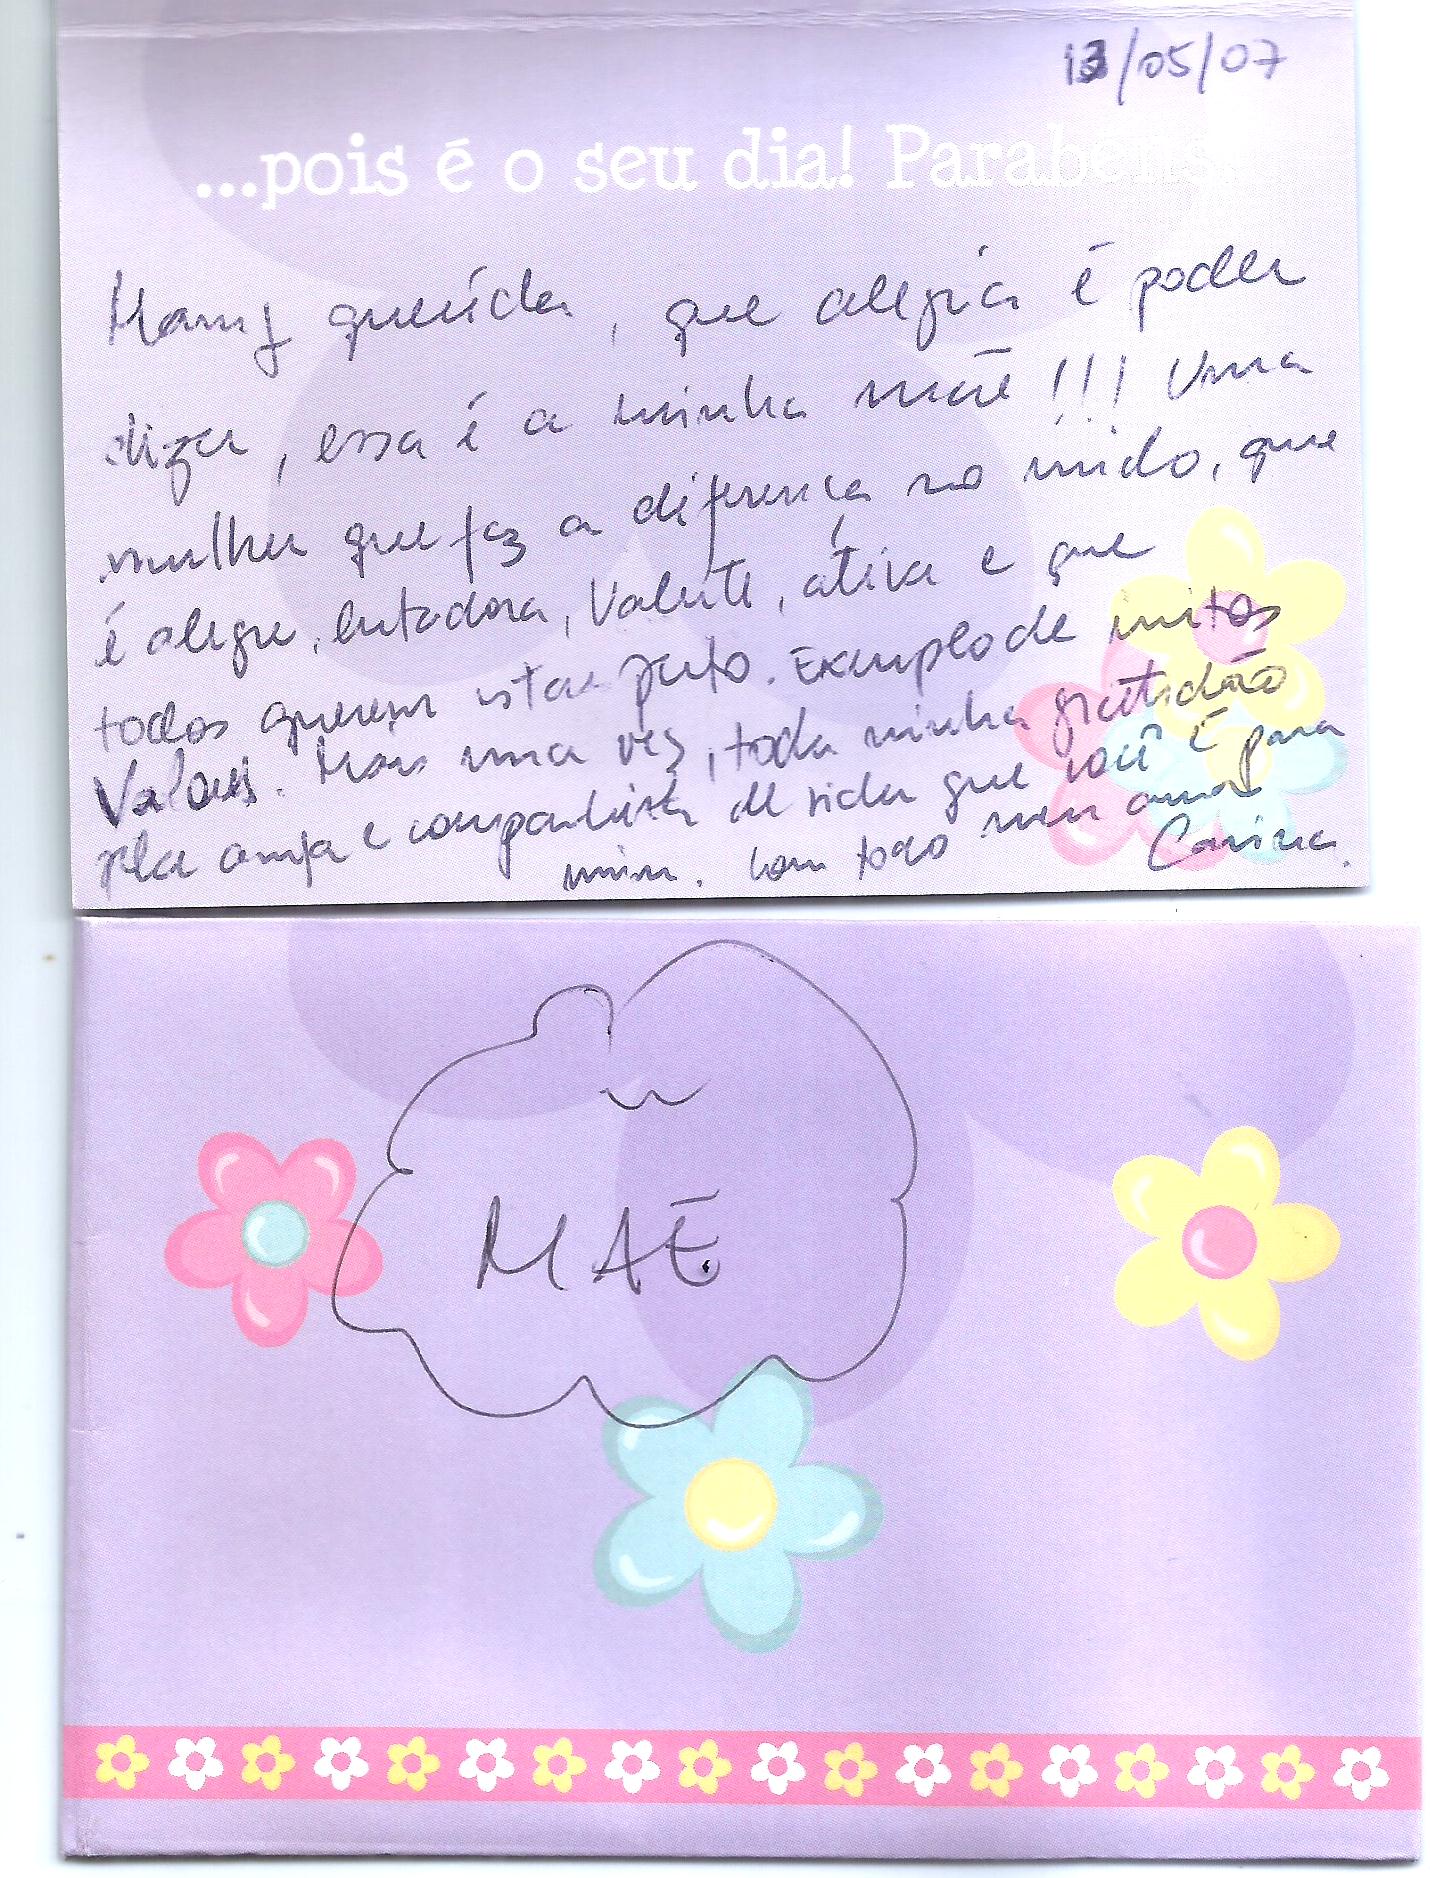 13/05/07
...pois é o seu dia! Parabéns!
Mamy querida, que alegria é poder
dizer, essa é a minha mãe!!! Uma
mulher que faz a diferença no mido, que
é alegre, lutadora, Valente, ativa e que
todos querem estar perto. Exemplo de muitos
Valores. Mais uma vez, toda minha gratidão
pela amiga e companheira de vida que você é para
mim. Com todo meu amor
Carina.
MÃE